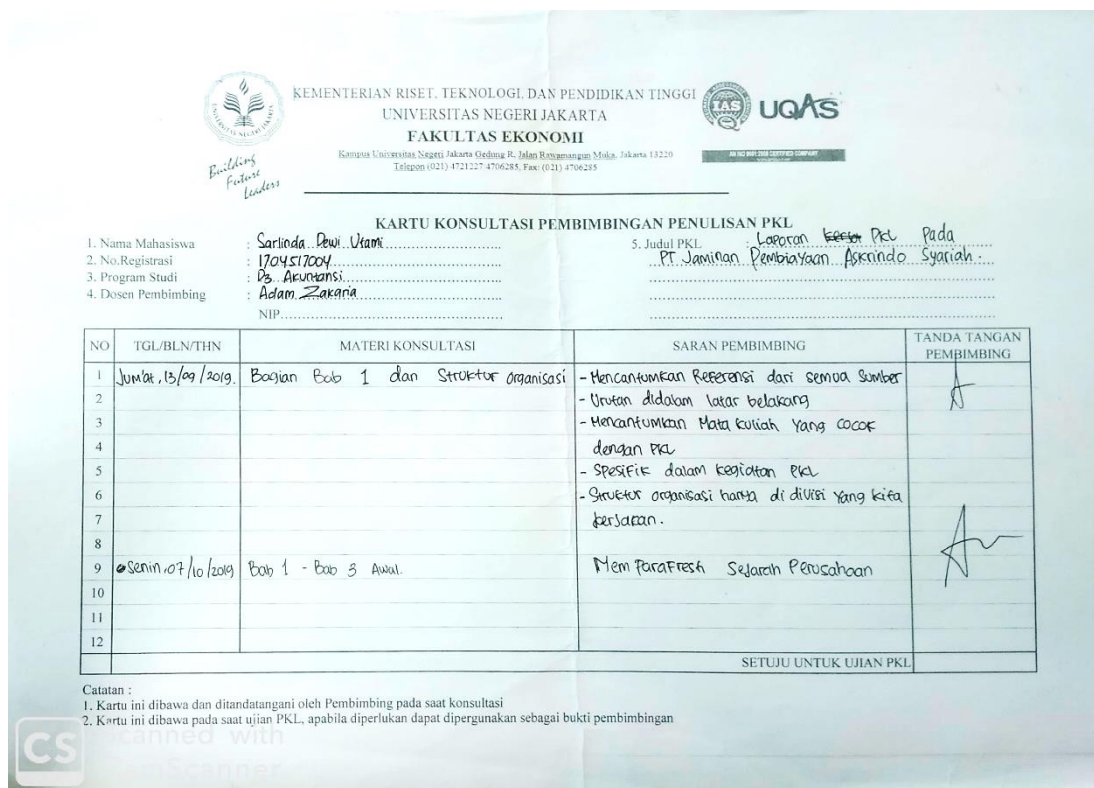 KEMENTERIAN RISET, TEKNOLOGI, DAN PENDIDIKAN TINGGI
UNIVERSITAS NEGERI JAKARTA
FAKULTAS EKONOMI
Kampus Universitas Negeri Jakarta Gedung R, Jalan Rawamangun Muka, Jakarta 13220
Telepon (021) 4721227/4706285, Fax: (021) 4706285
Building
Future
Leaders
IAS UQAS
KARTU KONSULTASI PEMBIMBINGAN PENULISAN PKL
1. Nama Mahasiswa : Sarlinda Dewi Utami
2. No.Registrasi : 1704517004
3. Program Studi : D3 Akuntansi
4. Dosen Pembimbing : Adam Zakaria
NIP
5. Judul PKL : Laporan PKL Pada
PT Jaminan Pembiayaan Askrindo Syariah.
NO TGL/BLN/THN MATERI KONSULTASI SARAN PEMBIMBING TANDA TANGAN PEMBIMBING
1 Jum'at, 13/09/2019. Bagian Bab 1 dan Struktur organisasi - Mencantumkan Referensi dari semua Sumber
2 - Urutan didalam latar belakang
3 - Mencantumkan Mata kuliah yang cocok
4 dengan PKL
5 - Spesifik dalam kegiatan PKL
6 - Struktur organisasi hanya di divisi yang kita
7 kerjakan.
8
9 Senin, 07/10/2019 Bab 1 - Bab 3 Awal. MemParaFresh Sejarah Perusahaan
10
11
12
SETUJU UNTUK UJIAN PKL
Catatan :
1. Kartu ini dibawa dan ditandatangani oleh Pembimbing pada saat konsultasi
2. Kartu ini dibawa pada saat ujian PKL, apabila diperlukan dapat dipergunakan sebagai bukti pembimbingan
CS Scanned with
CamScanner